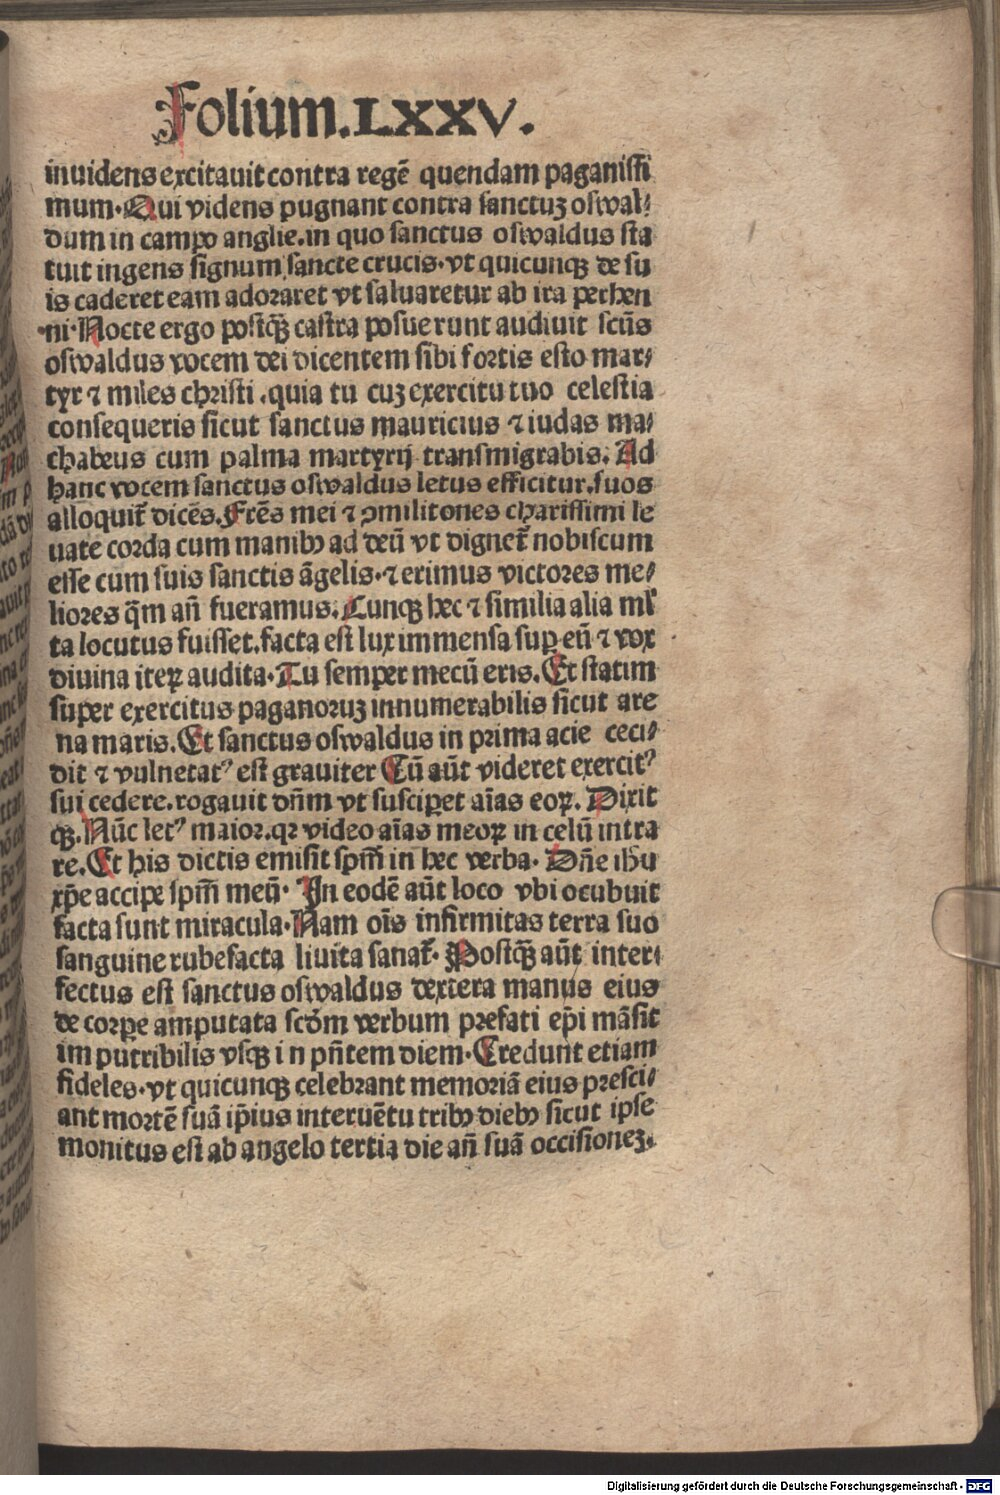 Folium.LXXV.
inuidens excitauit contra regē quendam paganissi
mum. Qui videns pugnant contra sanctuꝫ oswal⸗
dum in campo anglie. in quo sanctus oswaldus sta
tuit ingens signum sancte crucis. vt quicunqꝫ de su
is caderet eam adoraret vt saluaretur ab ira perhen
ni. Nocte ergo postqꝫ castra posuerunt audiuit scūs
oswaldus vocem dei dicentem sibi fortis esto mar⸗
tyr ⁊ miles christi . quia tu cuꝫ exercitu tuo celestia
consequeris sicut sanctus mauricius ⁊ iudas ma⸗
chabeus cum palma martyrij transmigrabis. Ad
hanc vocem sanctus oswaldus letus efficitur. suos
alloquit᷑ dicēs. Frēs mei ⁊ ꝯmilitones charissimi le
uate corda cum manibꝰ ad deū vt dignet᷑ nobiscum
esse cum suis sanctis āgelis. ⁊ erimus victores me⸗
liores q̄m an̄ fueramus. Cunqꝫ hec ⁊ similia alia ml᷑
ta locutus fuisset. facta est lux immensa suꝑ eū ⁊ vox
diuina iteꝝ audita. Tu semper mecū eris. Et statim
super exercitus paganoruꝫ innumerabilis sicut are
na maris. Et sanctus oswaldus in prima acie ceci⸗
dit ⁊ vulneratꝰ est grauiter Cū aūt videret exercitꝰ
sui cedere. rogauit dn̄m vt susciꝑet aīas eoꝝ. Dixit
qꝫ. Nūc letꝰ maior. qꝛ video aīas meoꝝ in celū intra
re. Et his dictis emisit spm̄ in hec verba. Dn̄e ihu
xp̄e accipe spm̄ meū. In eodē aūt loco vbi occubuit
facta sunt miracula. Nam oīs infirmitas terra suo
sanguine rubefacta liuita sanat᷑. Postqꝫ aūt inter⸗
fectus est sanctus oswaldus dextera manus eius
de corpe amputata scd̄m verbum prefati ep̄i māsit
imputribilis vsqꝫ in pn̄tem diem. Credunt etiam
fideles. vt quicunqꝫ celebrant memoriā eius presci⸗
ant mortē suā ip̄ius interuētu tribꝰ diebꝰ sicut ipse
monitus est ab angelo tertia die an̄ suā occisioneꝫ.
Digitalisierung gefördert durch die Deutsche Forschungsgemeinschaft - DFG